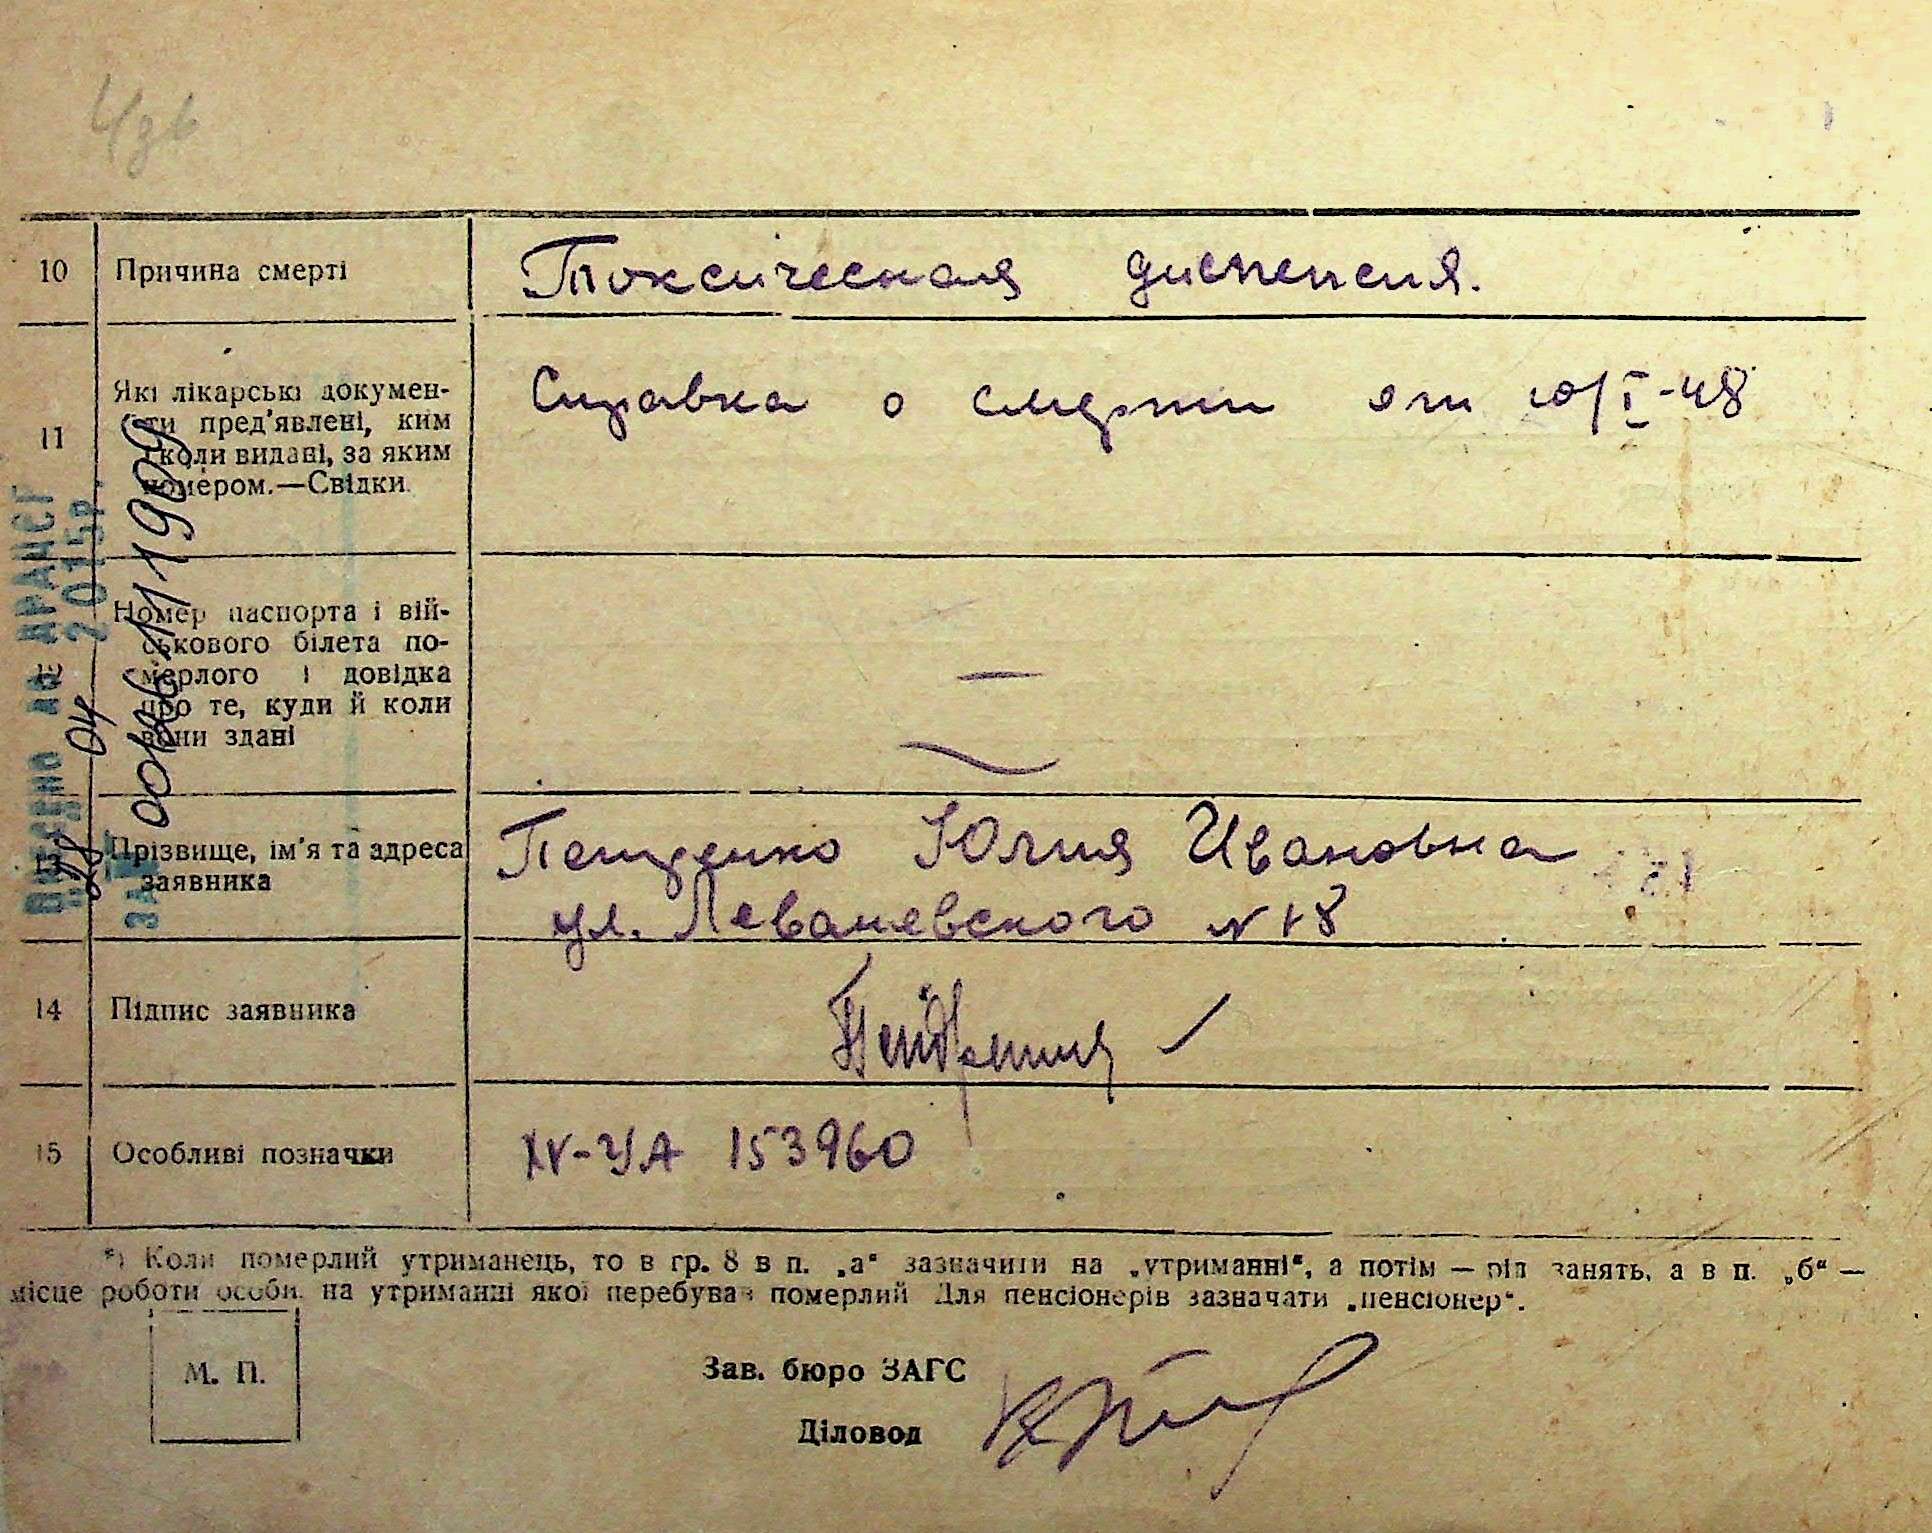 10 Причина смерті Токсическая диспепсия.
11 Які лікарські докумен-
ти пред'явлені, ким
і коли видані, за яким
номером.—Свідки.
Справка о смерти от 10/I-48
12 Номер паспорта і вій-
ськового білета по-
мерлого і довідка
про те, куди й коли
вони здані
—
13 Прізвище, ім'я та адреса
заявника
Юлия Ивановна
ул. Леваневского N 18
14 Підпис заявника
15 Особливі позначки IV-УА 153960
*) Коли померлий утриманець, то в гр. 8 в п. „а“ зазначити на „утриманні“, а потім — рід занять, а в п. „б“ —
місце роботи особи, на утриманні якої перебував померлий Для пенсіонерів зазначати „пенсіонер“.
М. П.
Зав. бюро ЗАГС
Діловод
Внесено до ДРАЦСГ
28 04 2015р.
ЗА № 00186111909